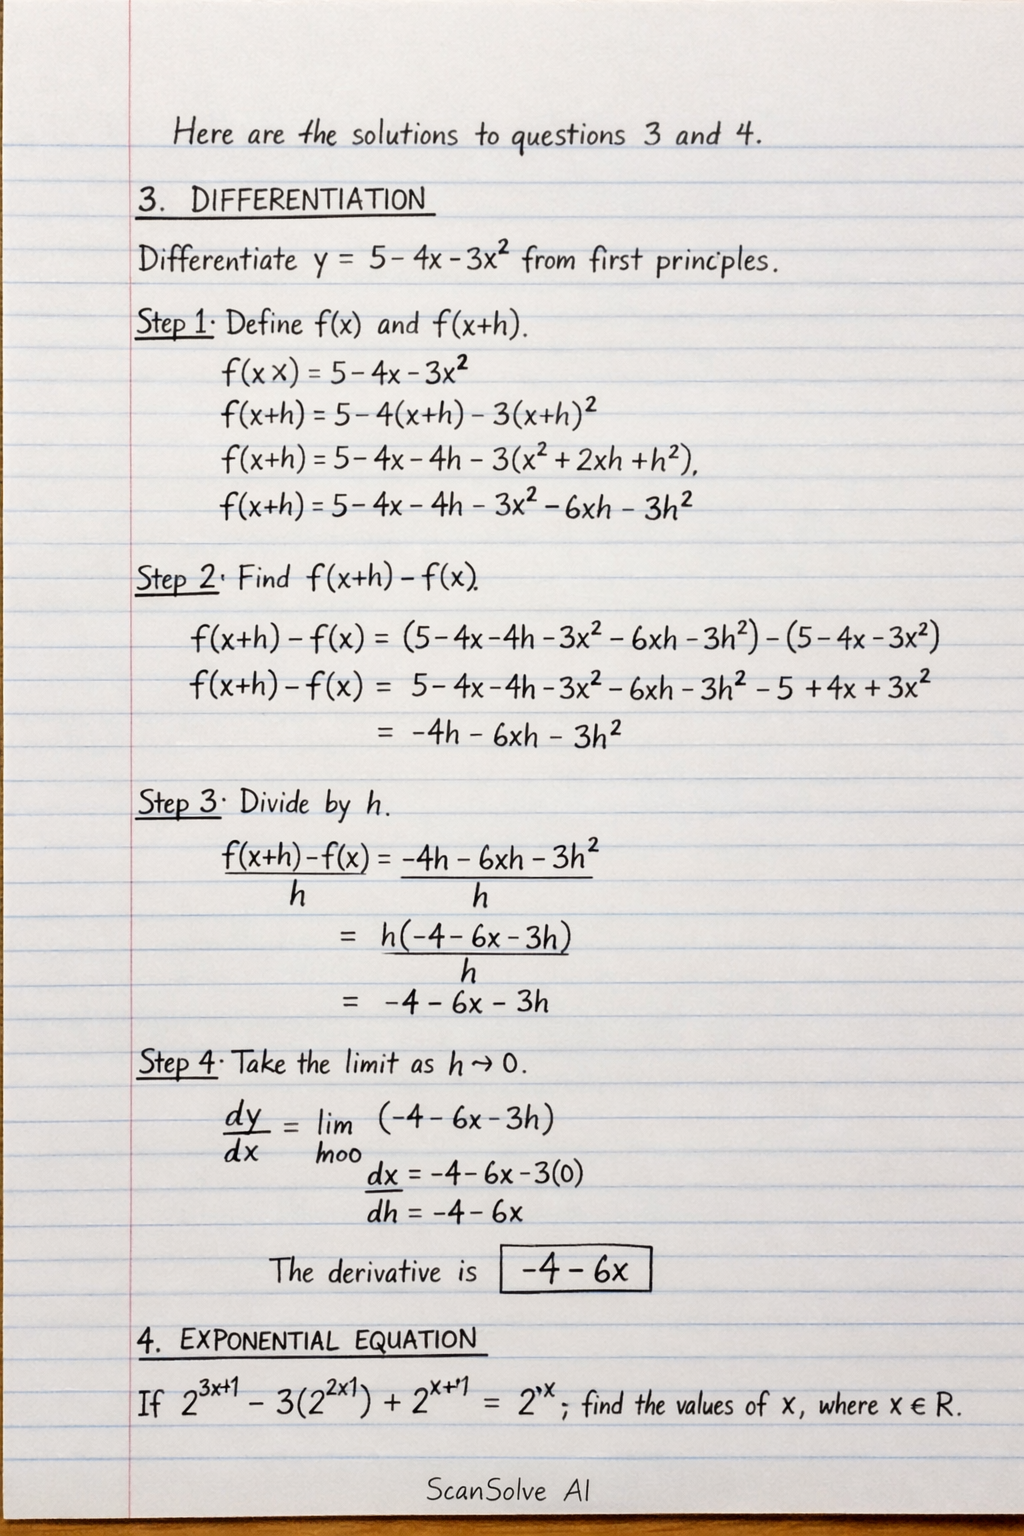 Here are the solutions to questions 3 and 4.
3. DIFFERENTIATION
Differentiate y = 5 - 4x - 3x² from first princples.
Step 1· Define f(x) and f(x+h).
f(x x) = 5 - 4x - 3x²
f(x+h) = 5 - 4(x+h) - 3(x+h)²
f(x+h) = 5 - 4x - 4h - 3(x² + 2xh + h²),
f(x+h) = 5 - 4x - 4h - 3x² - 6xh - 3h²
Step 2· Find f(x+h) - f(x).
f(x+h) - f(x) = (5 - 4x - 4h - 3x² - 6xh - 3h²) - (5 - 4x - 3x²)
f(x+h) - f(x) = 5 - 4x - 4h - 3x² - 6xh - 3h² - 5 + 4x + 3x²
= -4h - 6xh - 3h²
Step 3· Divide by h.
f(x+h) - f(x) = -4h - 6xh - 3h²
h h
= h(-4 - 6x - 3h)
h
= -4 - 6x - 3h
Step 4· Take the limit as h → 0.
dy = lim (-4 - 6x - 3h)
dx hoo
dx = -4 - 6x - 3(0)
dh = -4 - 6x
The derivative is -4 - 6x
4. EXPONENTIAL EQUATION
If 2^3x+1 - 3(2^2x1) + 2^x+'1 = 2^'x; find the values of x, where x ∈ R.
ScanSolve AI